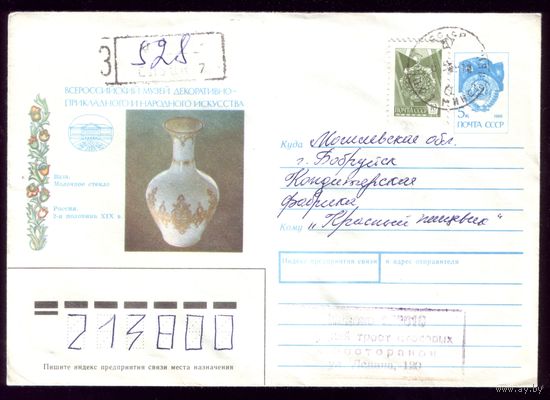 З 528
7
ВСЕРОССИЙСКИЙ МУЗЕЙ ДЕКОРАТИВНО-
ПРИКЛАДНОГО И НАРОДНОГО ИСКУССТВА
Ваза.
Молочное стекло
Россия.
2-я половина XIX в.
ПОЧТА СССР
5к
ПОЧТА СССР
Куда Могилевская обл.
г. Бобруйск
Кондитерская
фабрика
Кому „Красный пищевик"
Индекс предприятия связи и адрес отправителя
213800
трест столовых
ресторанов
ул. Ленина, 190
Пишите индекс предприятия связи места назначения
www.ay.by